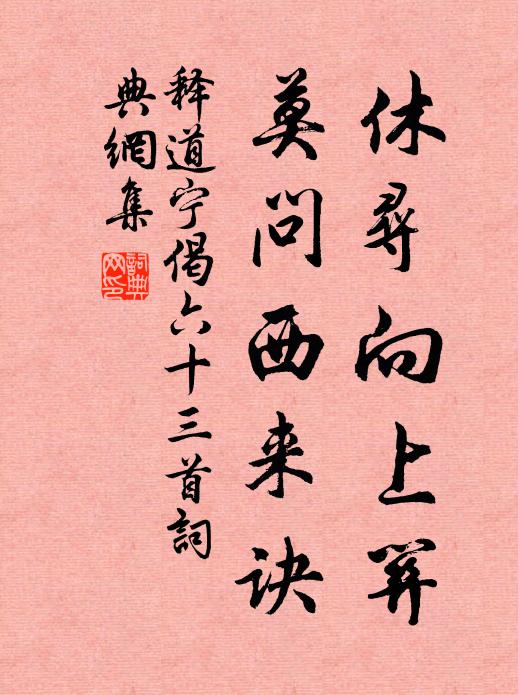 休尋向上關
莫问西来诀
释道宁偈六十三首詞
典網集
詞典网印